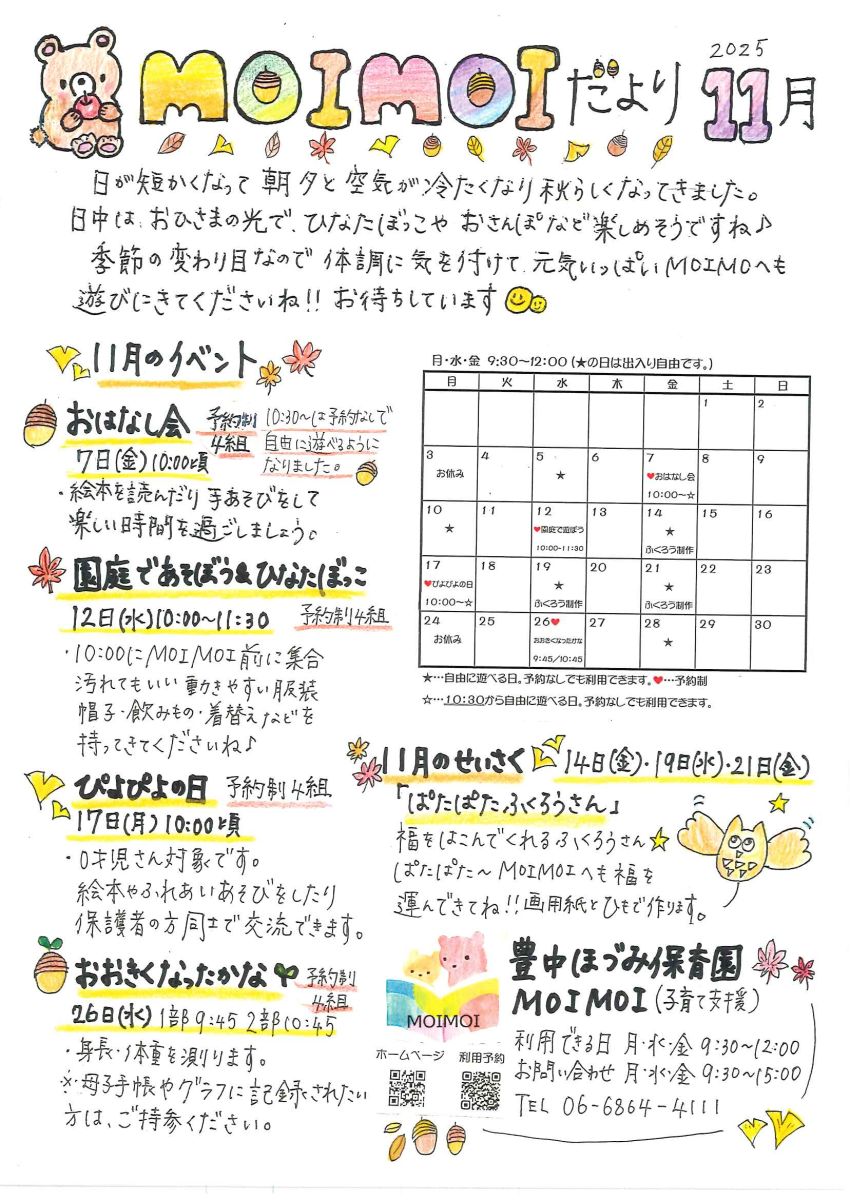 2025
MOIMOIだより 11月
日が短かくなって 朝夕と空気が冷たくなり秋らしくなってきました。
日中は、おひさまの光で、ひなたぼっこや おさんぽなど楽しめそうですね♪
季節の変わり目なので 体調に気を付けて、元気いっぱいMOIMOへも
遊びにきてくださいね!! お待ちしています
11月のイベント
おはなし会 予約制 4組
10:30〜は予約なしで
自由に遊べるように
なりました。
7日(金)10:00頃
・絵本を読んだり 手あそびをして
楽しい時間を過ごしましょう。
園庭であそぼう&ひなたぼっこ
12日(水)10:00〜11:30 予約制4組
・10:00にMOIMOI前に集合
汚れてもいい動きやすい服装
帽子・飲みもの・着替えなどを
持ってきてくださいね♪
ぴよぴよの日 予約制4組
17日(月)10:00頃
・0才児さん対象です。
絵本やふれあいあそびをしたり
保護者の方同士で交流できます。
おおきくなったかな 予約制 4組
26日(水) 1部9:45 2部10:45
・身長・体重を測ります。
※母子手帳やグラフに記録されたい
方は、ご持参ください。
月・水・金 9:30~12:00(★の日は出入り自由です。)
月 火 水 木 金 土 日
1 2
3 4 5 6 7 8 9
お休み ★ ♥おはなし会
10:00~☆
10 11 12 13 14 15 16
★ ♥園庭で遊ぼう ★
10:00-11:30 ふくろう制作
17 18 19 20 21 22 23
♥ぴよぴよの日 ★ ★
10:00~☆ ふくろう制作 ふくろう制作
24 25 26♥ 27 28 29 30
お休み おおきくなったかな ★
9:45/10:45
★…自由に遊べる日。予約なしでも利用できます。♥…予約制
☆…10:30から自由に遊べる日。予約なしでも利用できます。
11月のせいさく 14日(金)・19日(水)・21日(金)
「ぱたぱたふくろうさん」
福をはこんでくれるふくろうさん
ぱたぱた〜MOIMOIへも福を
運んできてね!!画用紙とひもで作ります。
MOIMOI
ホームページ 利用予約
豊中ほづみ保育園
MOIMOI(子育て支援)
利用できる日 月・水・金 9:30〜12:00
お問い合わせ 月・水・金 9:30〜15:00
TEL 06-6864-4111